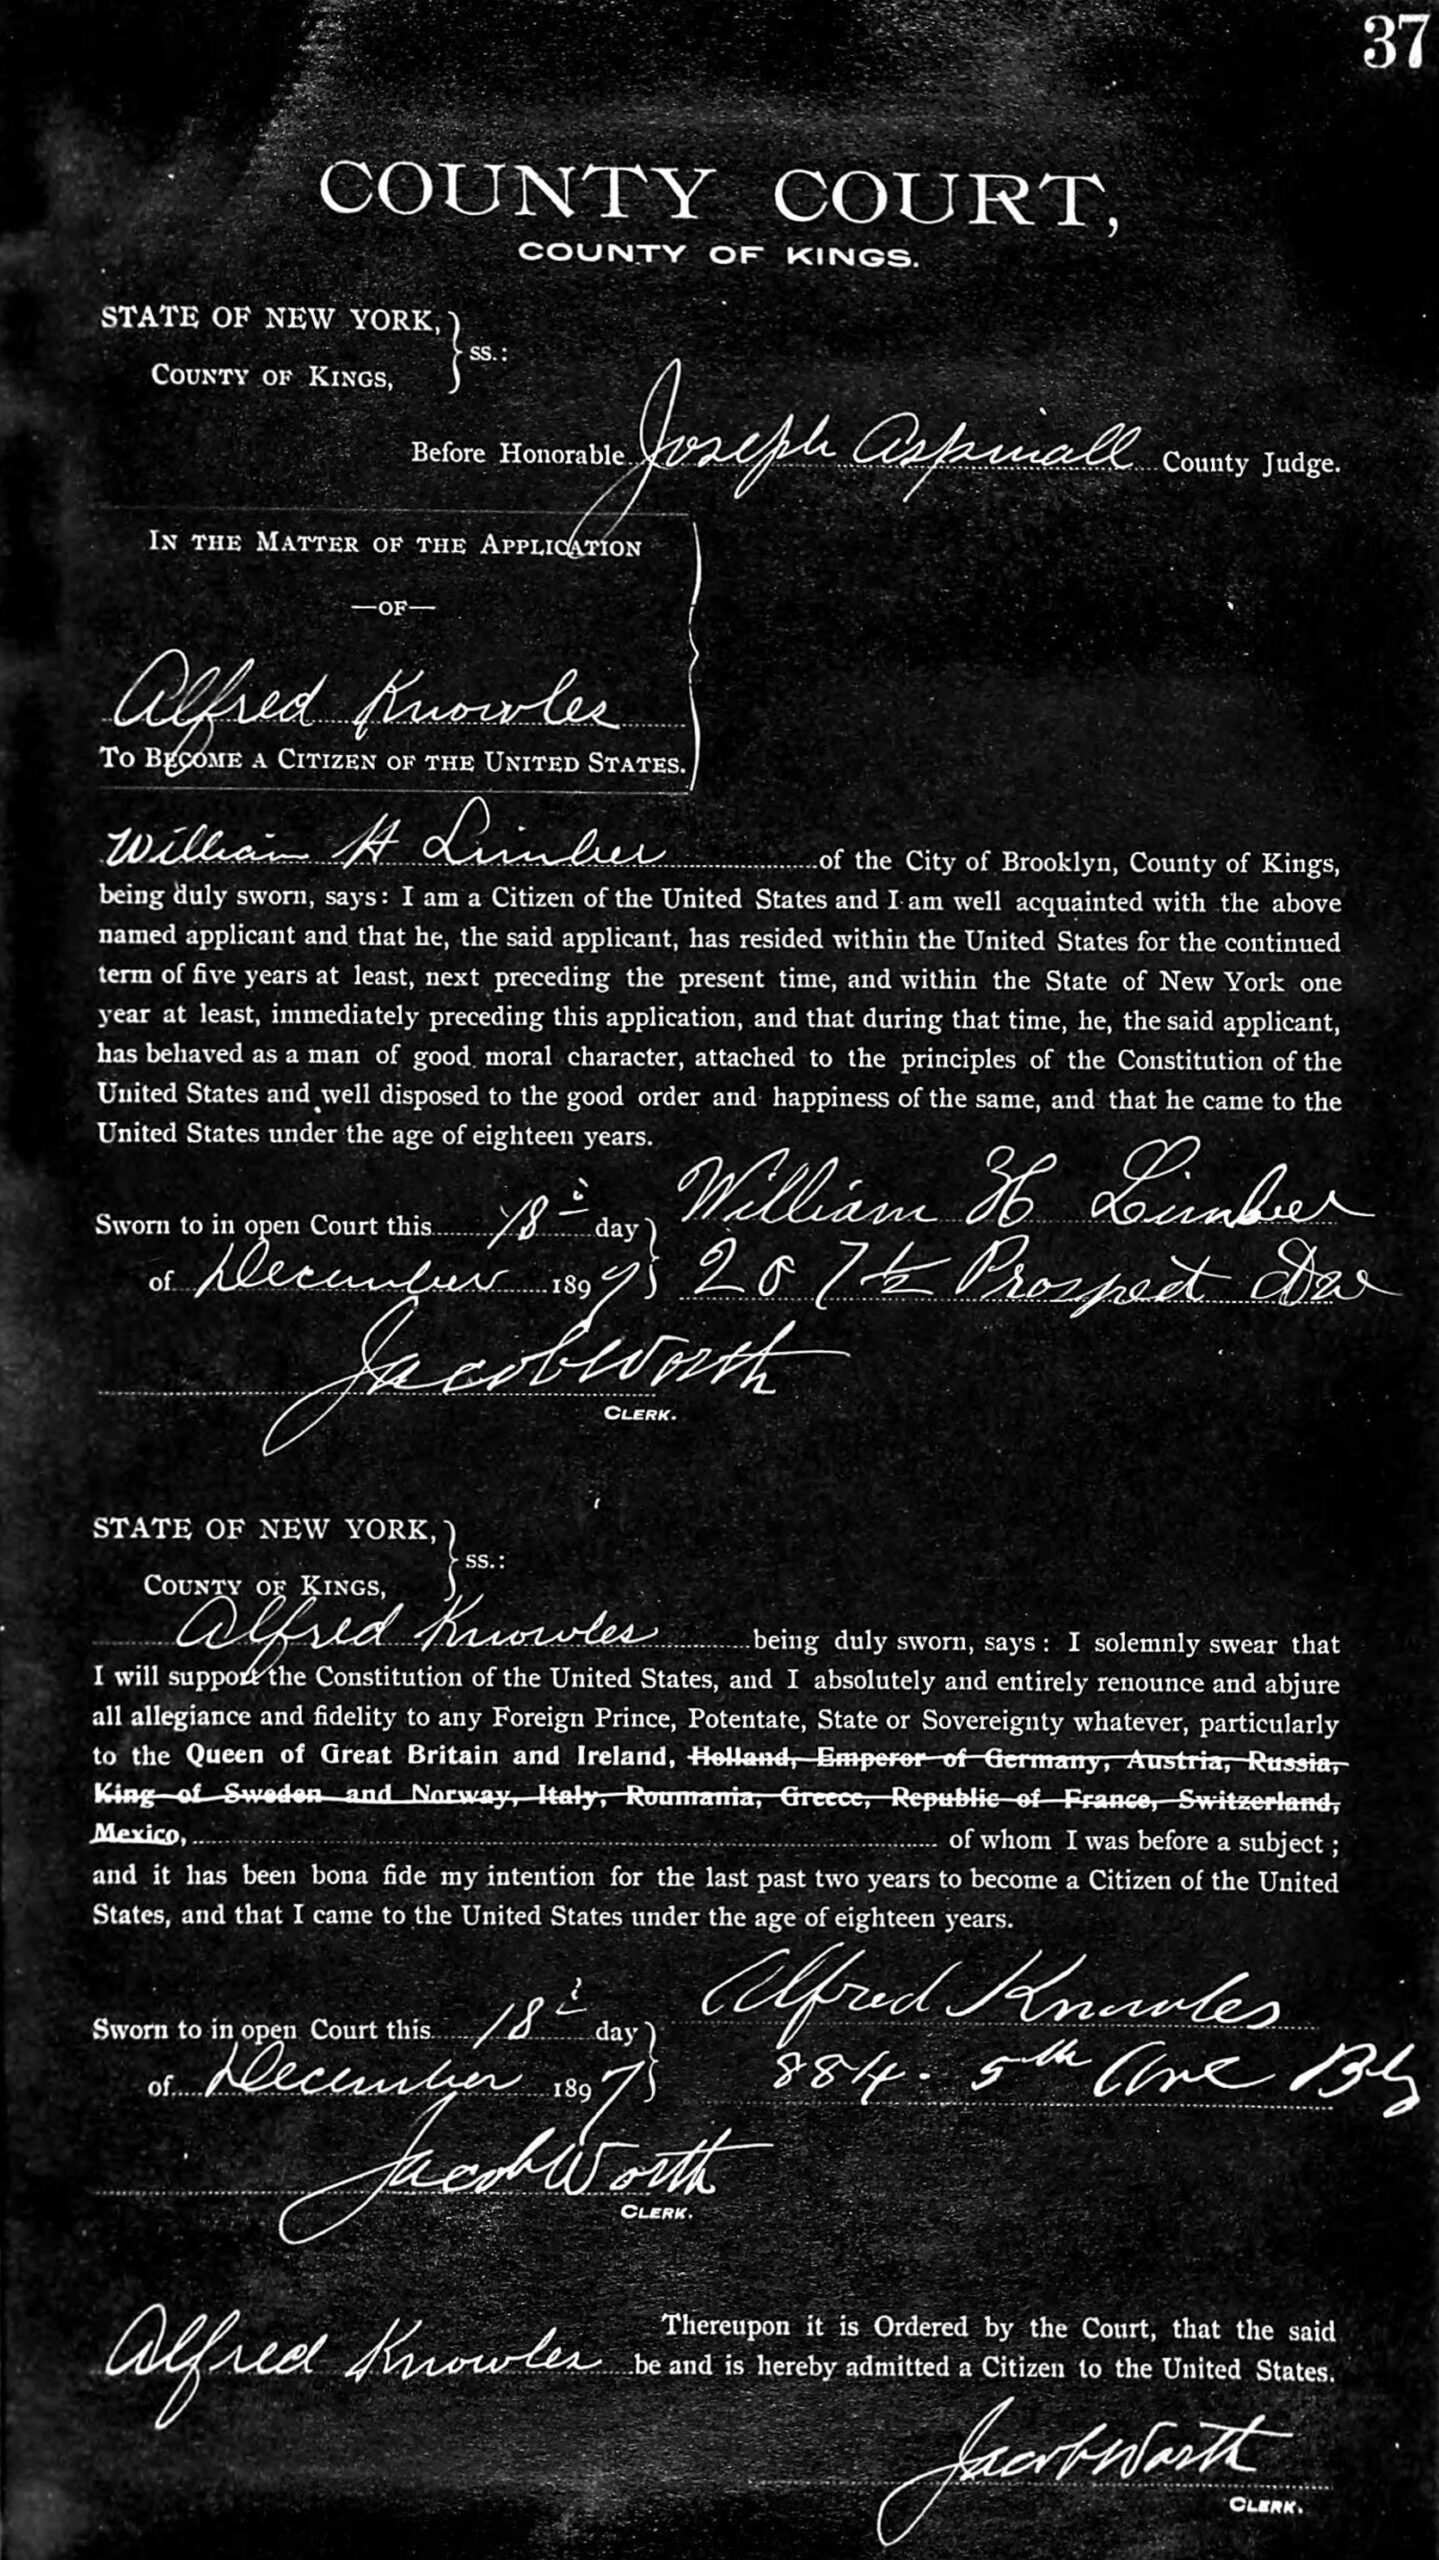 37
COUNTY COURT,
COUNTY OF KINGS.
STATE OF NEW YORK,
ss.:
COUNTY OF KINGS,
Before Honorable Joseph Aspinall County Judge.
IN THE MATTER OF THE APPLICATION
—OF—
Alfred Knowles
TO BECOME A CITIZEN OF THE UNITED STATES.
William H Limber of the City of Brooklyn, County of Kings,
being duly sworn, says: I am a Citizen of the United States and I am well acquainted with the above
named applicant and that he, the said applicant, has resided within the United States for the continued
term of five years at least, next preceding the present time, and within the State of New York one
year at least, immediately preceding this application, and that during that time, he, the said applicant,
has behaved as a man of good moral character, attached to the principles of the Constitution of the
United States and well disposed to the good order and happiness of the same, and that he came to the
United States under the age of eighteen years.
William H Limber
Sworn to in open Court this 18 day
of December 1897 207½ Prospect Ave
Jacob Worth
CLERK.
STATE OF NEW YORK,
ss.:
COUNTY OF KINGS,
Alfred Knowles being duly sworn, says: I solemnly swear that
I will support the Constitution of the United States, and I absolutely and entirely renounce and abjure
all allegiance and fidelity to any Foreign Prince, Potentate, State or Sovereignty whatever, particularly
to the Queen of Great Britain and Ireland, Holland, Emperor of Germany, Austria, Russia,
King of Sweden and Norway, Italy, Roumania, Greece, Republic of France, Switzerland,
Mexico, of whom I was before a subject;
and it has been bona fide my intention for the last past two years to become a Citizen of the United
States, and that I came to the United States under the age of eighteen years.
Alfred Knowles
Sworn to in open Court this 18 day
of December 1897 884. 5th Ave
Jacob Worth
CLERK.
Thereupon it is Ordered by the Court, that the said
Alfred Knowles be and is hereby admitted a Citizen to the United States.
Jacob Worth
CLERK.